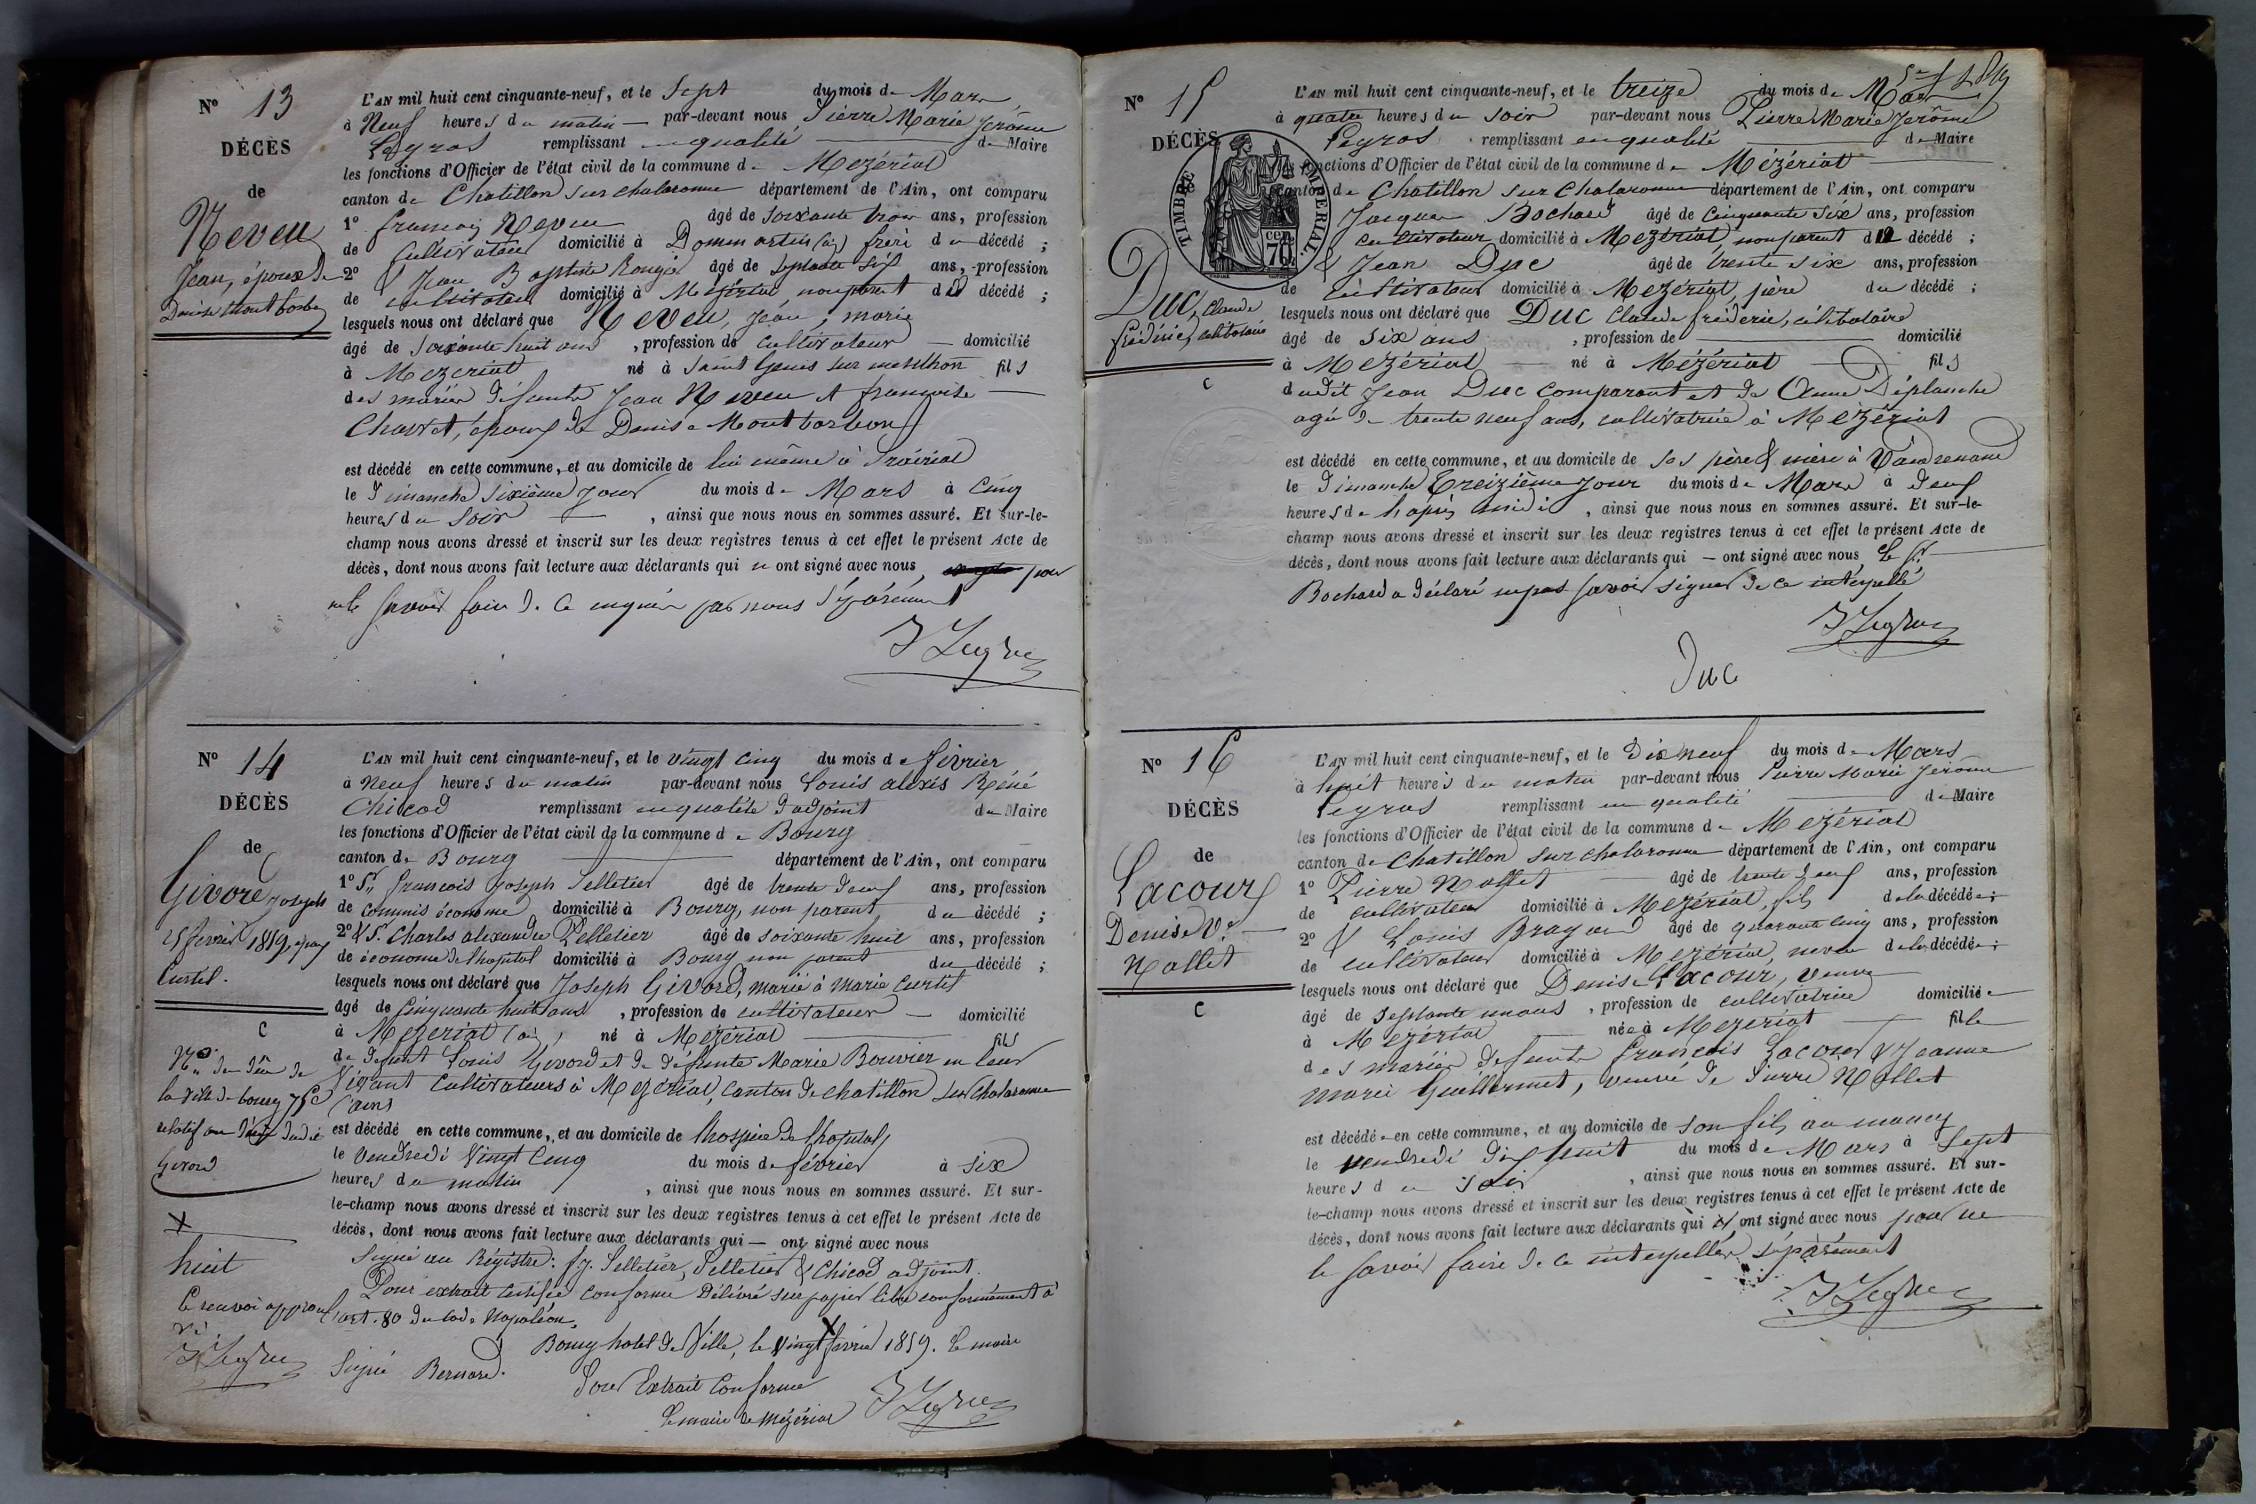 N° 13
DÉCÈS
de
Neveu
Jean, époux de
Denise Montbarbon
L'AN mil huit cent cinquante-neuf, et le Sept du mois de Mars
à Neuf heures du matin par-devant nous Pierre Marie Jerôme
remplissant en qualité de Maire
les fonctions d'Officier de l'état civil de la commune de Mézériat
canton de Chatillon sur chalaronne département de l'Ain, ont comparu
1° françois Neveu âgé de soixante trois ans, profession
de Cultivateur domicilié à Dommartin (ain) frère du décédé ;
2° & Jean Baptiste Rongier âgé de septante six ans, profession
de cultivateur domicilié à Mézériat, non parent du décédé ;
lesquels nous ont déclaré que Neveu, Jean, marié
âgé de soixante huit ans, profession de cultivateur domicilié
à Mézériat né à Saint Genis sur menthon fils
des mariés défunts Jean Neveu et françoise
Charvet, époux de Denise Montbarbon
est décédé en cette commune, et au domicile de lui même à
le Dimanche Sixième jour du mois de Mars à Cinq
heures du Soir, ainsi que nous nous en sommes assuré. Et sur-le-
champ nous avons dressé et inscrit sur les deux registres tenus à cet effet le présent Acte de
décès, dont nous avons fait lecture aux déclarants qui n ont signé avec nous pour
ne le savoir faire de ce enquis par nous séparément
N° 14
DÉCÈS
de
Givord Joseph
25 février 1859, époux
Curtil.
C
la ville de bourg
relatif au décès dudit
Givord
X
huit
le renvoi approu
vé
L'AN mil huit cent cinquante-neuf, et le vingt cinq du mois de février
à Neuf heures du matin par-devant nous Louis alexis Réné
Chicod remplissant en qualité d'adjoint du Maire
les fonctions d'Officier de l'état civil de la commune de Bourg
canton de Bourg département de l'Ain, ont comparu
1° Sr. françois Joseph Pelletier âgé de trente neuf ans, profession
de commis économe domicilié à Bourg, non parent du décédé ;
2° & Sr. Charles alexandre Pelletier âgé de soixante huit ans, profession
de économe de l'hopital domicilié à Bourg non parent du décédé ;
lesquels nous ont déclaré que Joseph Givord, marié à Marie Curtil
âgé de Cinquante huit ans, profession de cultivateur domicilié
à Mézériat (ain) né à Mézériat fils
de defunt Louis Givord et de défunte Marie Bouvier en leur
vivant Cultivateurs à Mézériat, canton de Chatillon sur Chalaronne
(ain)
est décédé en cette commune, et au domicile de l'hospice de l'hopital
le Vendredi Vingt Cinq du mois de février à six
heures du matin, ainsi que nous nous en sommes assuré. Et sur-
le-champ nous avons dressé et inscrit sur les deux registres tenus à cet effet le présent Acte de
décès, dont nous avons fait lecture aux déclarants qui — ont signé avec nous
Signé au Régistre : f.J. Pelletier, Pelletier & Chicod adjoint.
Pour extrait certifié conforme Délivré sur papier libre conformément à
l'art. 80 du Code Napoléon,
Bourg hotel de Ville, le Vingt X février 1859. Le maire
Signé Bernard.
Pour Extrait Conforme
Le maire de Mézériat
N° 15
DÉCÈS
TIMBRE IMPERIAL
cen. 70
Duc, Claude
frédéric, célibataire
C
L'AN mil huit cent cinquante-neuf, et le treize du mois de Mars
à quatre heures du soir par-devant nous Pierre Marie Jerôme
remplissant en qualité de Maire
les fonctions d'Officier de l'état civil de la commune de Mézériat
canton de Chatillon sur Chalaronne département de l'Ain, ont comparu
Jacques Bochard âgé de Cinquante Six ans, profession
cultivateur domicilié à Mézériat, non parent du décédé ;
& Jean Duc âgé de trente six ans, profession
de Cultivateur domicilié à Mézériat, père du décédé ;
lesquels nous ont déclaré que Duc Claude fréderic, célibataire
âgé de six ans, profession de domicilié
à Mézériat né à Mézériat fils
dudit Jean Duc comparant et de Anne Déplanche
agée de trente neuf ans, cultivatrice à Mézériat
est décédé en cette commune, et au domicile de ses père & mère à
le Dimanche Treizième jour du mois de Mars à Deux
heures de l'après midi, ainsi que nous nous en sommes assuré. Et sur-le-
champ nous avons dressé et inscrit sur les deux registres tenus à cet effet le présent Acte de
décès, dont nous avons fait lecture aux déclarants qui — ont signé avec nous, Le Sr.
Bochard a déclaré ne pas savoir signer de ce interpellé
Duc
N° 16
DÉCÈS
de
Lacour
Denise Ve.
Nallet
C
L'AN mil huit cent cinquante-neuf, et le Dix neuf du mois de Mars
à huit heures du matin par-devant nous Pierre Marie Jerôme
remplissant en qualité de Maire
les fonctions d'Officier de l'état civil de la commune de Mézériat
canton de Chatillon sur chalaronne département de l'Ain, ont comparu
1° Pierre Nallet âgé de trente neuf ans, profession
de cultivateur domicilié à Mézériat, fils de la décédée ;
2° & Louis Brayard âgé de quarante cinq ans, profession
de cultivateur domicilié à Mézériat, neveu de la décédée ;
lesquels nous ont déclaré que Denise Lacour, veuve
âgé de septante un ans, profession de cultivatrice domiciliée
à Mézériat née à Mézériat fille
des mariés defunts François Lacour & Jeanne
Marie Guillermet, veuve de Pierre Nallet
est décédée en cette commune, et au domicile de son fils au
le vendredi dix huit du mois de Mars à Sept
heures du soir, ainsi que nous nous en sommes assuré. Et sur-
le-champ nous avons dressé et inscrit sur les deux registres tenus à cet effet le présent Acte de
décès, dont nous avons fait lecture aux déclarants qui n'ont signé avec nous pour ne
le savoir faire de ce interpellés séparément